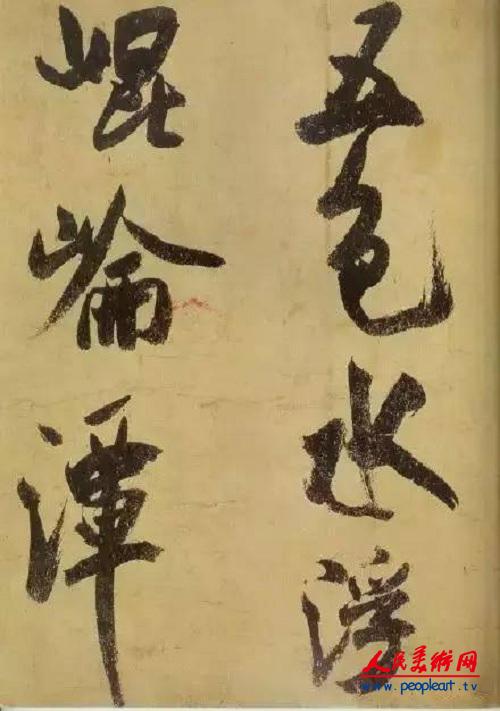 五色水浮
崐崘潭
人民美術网
www.peopleart.tv